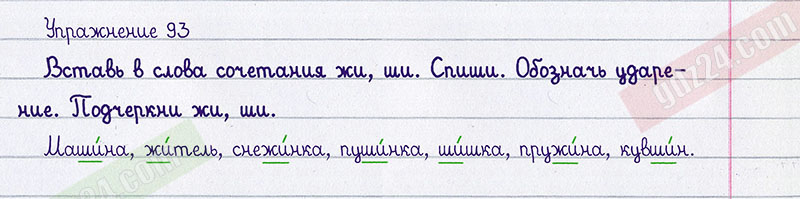 Упражнение 93
Вставь в слова сочетания жи, ши. Спиши. Обозначь ударе-
ние. Подчеркни жи, ши.
Маши́на, жи́тель, снежи́нка, пуши́нка, ши́шка, пружи́на, кувши́н.
gdz24.com
gdz24.com